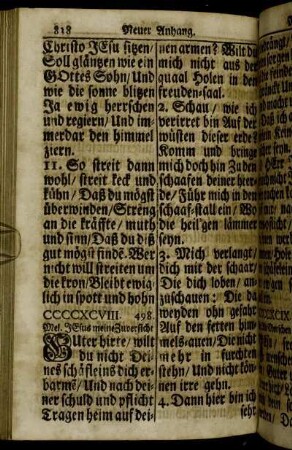 818 Neuer Anhang.
Christo JEsu sitzen/
Soll gläntzen wie ein
GOttes Sohn/Und
wie die sonne blitzen
Ja ewig herrschen
und regiern/Und im-
merdar den himmel
ziern.
11. So streit dann
wohl/streit keck und
kühn/Daß du mögst
überwinden/Streng
an die kräffte/muth
und sinn/Daß du diß
gut mögst finde. Wer
nicht will streiten um
die kron/Bleibt ewig-
lich in spott und hohn
CCCCXCVIII. 498.
Mel. JEsus meine Zuversicht
Guter hirte/wilt
du nicht Dei-
nes schäfleins dich er-
barmē/Und nach dei-
ner schuld und pflicht
Tragen heim auf dei-
nen armen? Wilt du
mich nicht aus der
quaal Holen in den
freuden-saal.
2. Schau/wie ich
verirret bin Auf der
wüsten dieser erde?
Komm und bringe
mich doch hin Zu den
schaafen deiner heer-
de/Führ mich in den
schaaf-stall ein/Wo
die heil'gen lämmer
seyn.
3. Mich verlangt/
dich mit der schaar/
Die dich loben/an-
zuschauen: Die da
weyden ohn gefahr
Auf den fetten him-
mels-auen/Die nicht
mehr in furchten
stehn/Und nicht kön-
nen irre gehn.
4. Dann hier bin ich
sehr